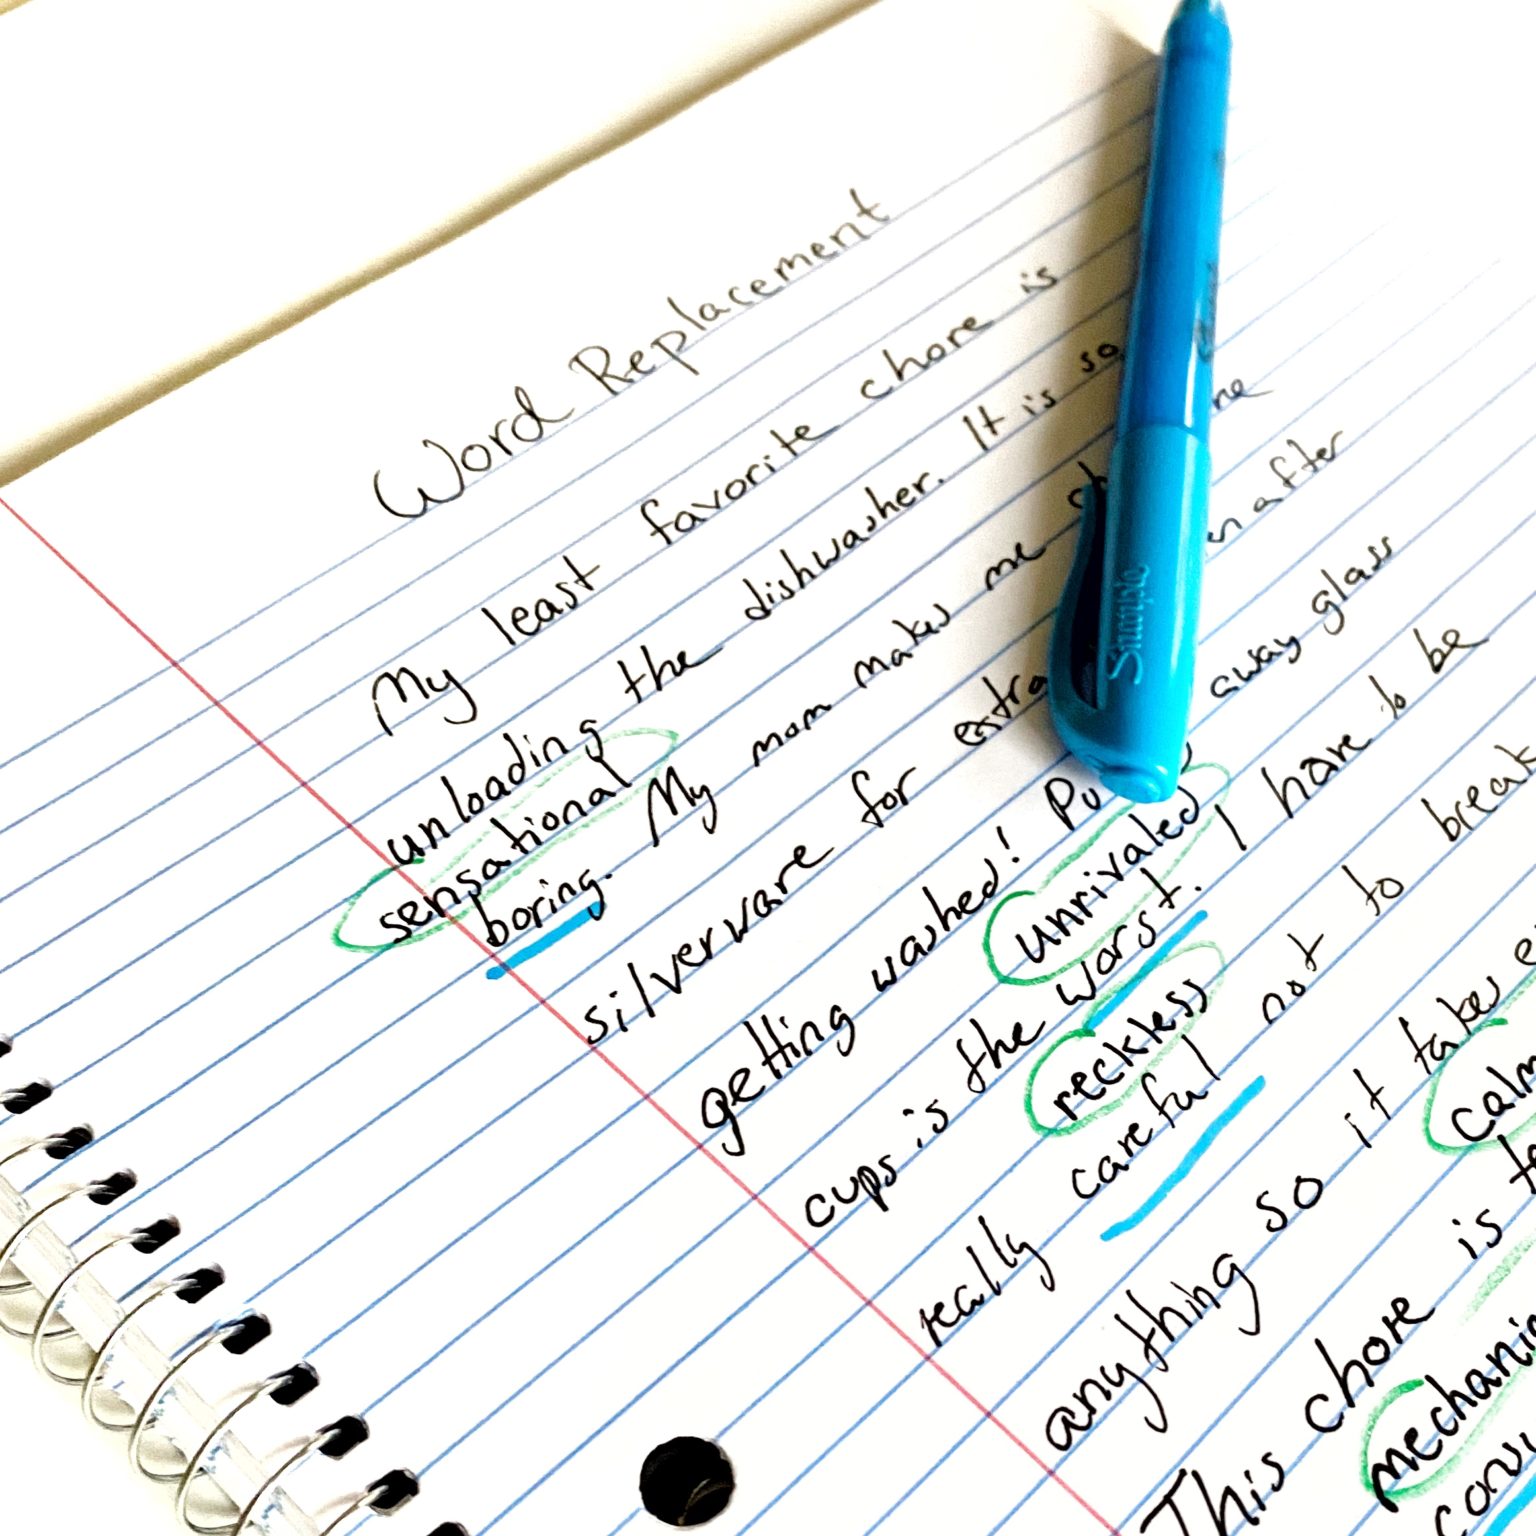 Word Replacement
My least favorite chore is
unloading the dishwasher. It is so
sensational
boring. My mom makes me
silverware for extra after
getting washed! away glass
unrivaled
cups is the worst. I have to be
reckless
really careful not to break
anything so it takes
calm
This chore is
mechanic
Sharpie